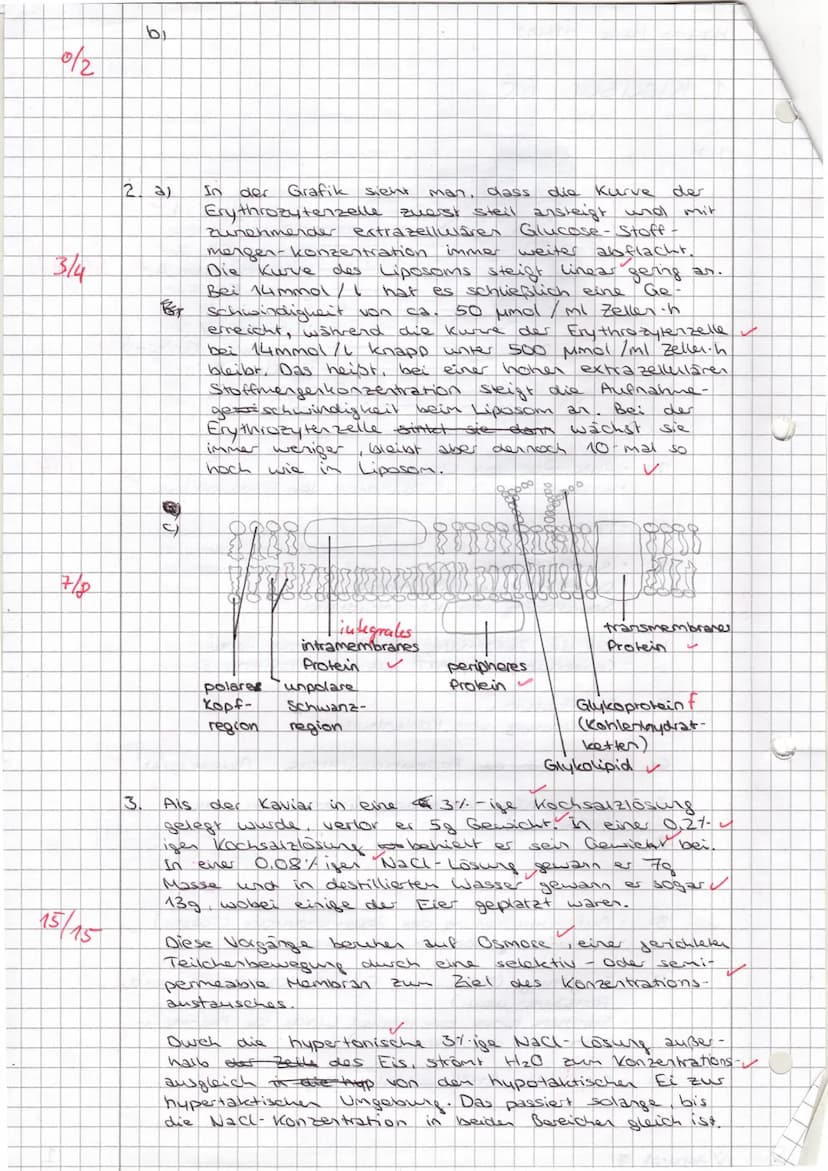 b)
0/2
2. a) In der Grafik sieht man, dass die Kurve der
Erythrozytenzelle zuerst steil ansteigt und mit
zunehmender extrazellulären Glucose-Stoff-
mengen-konzentration immer weiter abflacht.
3/4
Die Kurve des Liposoms steigt linear gering an.
Bei 14mmol/l hat es schließlich eine Ge-
schwindigkeit von ca. 50 µmol/ml Zellen·h
erreicht, während die Kurve der Erythrozytenzelle
bei 14mmol/l knapp unter 500 µmol/ml Zellen·h
bleibt. Das heißt, bei einer hohen extrazellulären
Stoffmengenkonzentration steigt die Aufnahme-
geschwindigkeit beim Liposom an. Bei der
Erythrozytenzelle sinkt sie dann wächst sie
immer weniger, bleibt aber dennoch 10-mal so
hoch wie in Liposom.
c)
7/8
integrales
intramembranes
Protein
transmembranes
Protein
peripheres
Protein
polares
Kopf-
region
unpolare
Schwanz-
region
Glykoprotein f
(Kohlenhydrat-
ketten)
Glykolipid
3. Als der Kaviar in eine 3%-ige Kochsalzlösung
gelegt wurde, verlor er 5g Gewicht. In einer 0,2%-
igen Kochsalzlösung behielt er sein Gewicht bei.
In einer 0,08%igen NaCl-Lösung gewann er 7g
Masse und in destillierten Wasser gewann er sogar
13g, wobei einige der Eier geplatzt waren.
15/15
Diese Vorgänge beruhen auf Osmose, einer gerichteten
Teilchenbewegung durch eine selektiv- oder semi-
permeable Membran zum Ziel des Konzentrations-
austausches.
Durch die hypertonische 3%ige NaCl-Lösung außer-
halb der Zelle des Eis, strömt H₂O zum Konzentrations-
ausgleich in die hyp von den hypotaktischen Ei zur
hypertaktischen Umgebung. Das passiert solange, bis
die NaCl-Konzentration in beiden Bereichen gleich ist.